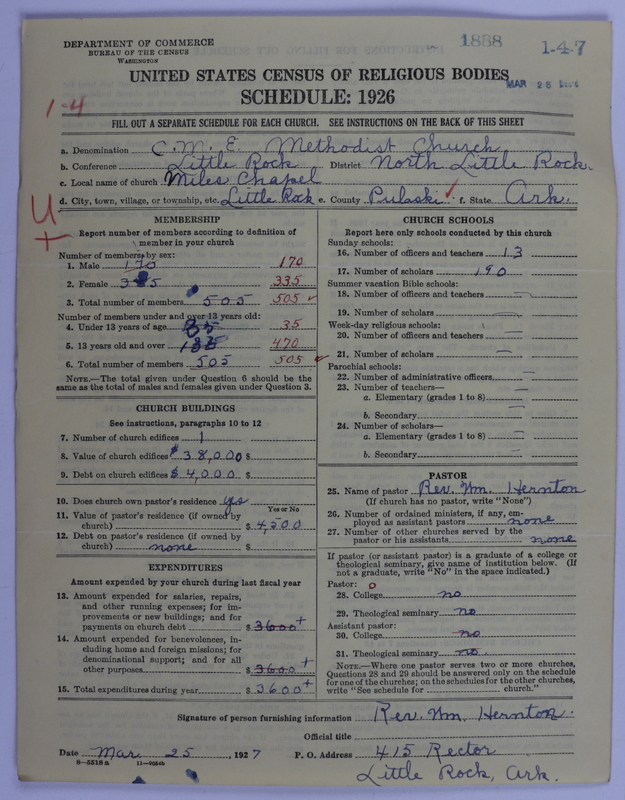 DEPARTMENT OF COMMERCE
BUREAU OF THE CENSUS
WASHINGTON
1838
1-4-7
MAR 28
UNITED STATES CENSUS OF RELIGIOUS BODIES
SCHEDULE: 1926
1-4
FILL OUT A SEPARATE SCHEDULE FOR EACH CHURCH. SEE INSTRUCTIONS ON THE BACK OF THIS SHEET
a. Denomination C. M. E. Methodist Church
b. Conference Little Rock District North Little Rock.
c. Local name of church Miles Chapel
d. City, town, village, or township, etc. Little Rock e. County Pulaski f. State Ark.
U
+
MEMBERSHIP
Report number of members according to definition of member in your church
Number of members by sex:
1. Male 170 170
2. Female 335 335
3. Total number of members 505 505
Number of members under and over 13 years old:
4. Under 13 years of age 35 35
5. 13 years old and over 470
6. Total number of members 505 505
NOTE.—The total given under Question 6 should be the
same as the total of males and females given under Question 3.
CHURCH BUILDINGS
See instructions, paragraphs 10 to 12
7. Number of church edifices 1
8. Value of church edifices $38,000 $
9. Debt on church edifices $4,000 $
10. Does church own pastor's residence yes
Yes or No
11. Value of pastor's residence (if owned by
church) $ 4,500
12. Debt on pastor's residence (if owned by
church) none $
EXPENDITURES
Amount expended by your church during last fiscal year
13. Amount expended for salaries, repairs,
and other running expenses; for im-
provements or new buildings; and for
payments on church debt $ 3600+
14. Amount expended for benevolences, in-
cluding home and foreign missions; for
denominational support; and for all
other purposes $ 3600+
15. Total expenditures during year $ 3600+
CHURCH SCHOOLS
Report here only schools conducted by this church
Sunday schools:
16. Number of officers and teachers 13
17. Number of scholars 190
Summer vacation Bible schools:
18. Number of officers and teachers —
19. Number of scholars —
Week-day religious schools:
20. Number of officers and teachers —
21. Number of scholars —
Parochial schools:
22. Number of administrative officers —
23. Number of teachers—
a. Elementary (grades 1 to 8) —
b. Secondary —
24. Number of scholars—
a. Elementary (grades 1 to 8) —
b. Secondary —
PASTOR
25. Name of pastor Rev. Wm. Hernton
(If church has no pastor, write "None")
26. Number of ordained ministers, if any, em-
ployed as assistant pastors none
27. Number of other churches served by the
pastor or his assistants none
If pastor (or assistant pastor) is a graduate of a college or
theological seminary, give name of institution below. (If
not a graduate, write "No" in the space indicated.)
Pastor: o
28. College no
29. Theological seminary no
Assistant pastor:
30. College no
31. Theological seminary no.
NOTE.—Where one pastor serves two or more churches,
Questions 28 and 29 should be answered only on the schedule
for one of the churches; on the schedules for the other churches,
write "See schedule for church."
Signature of person furnishing information Rev. Wm. Hernton.
Official title
Date Mar. 25, 1927 P. O. Address 415 Rector
8—5518a 11—9054b
Little Rock, Ark.